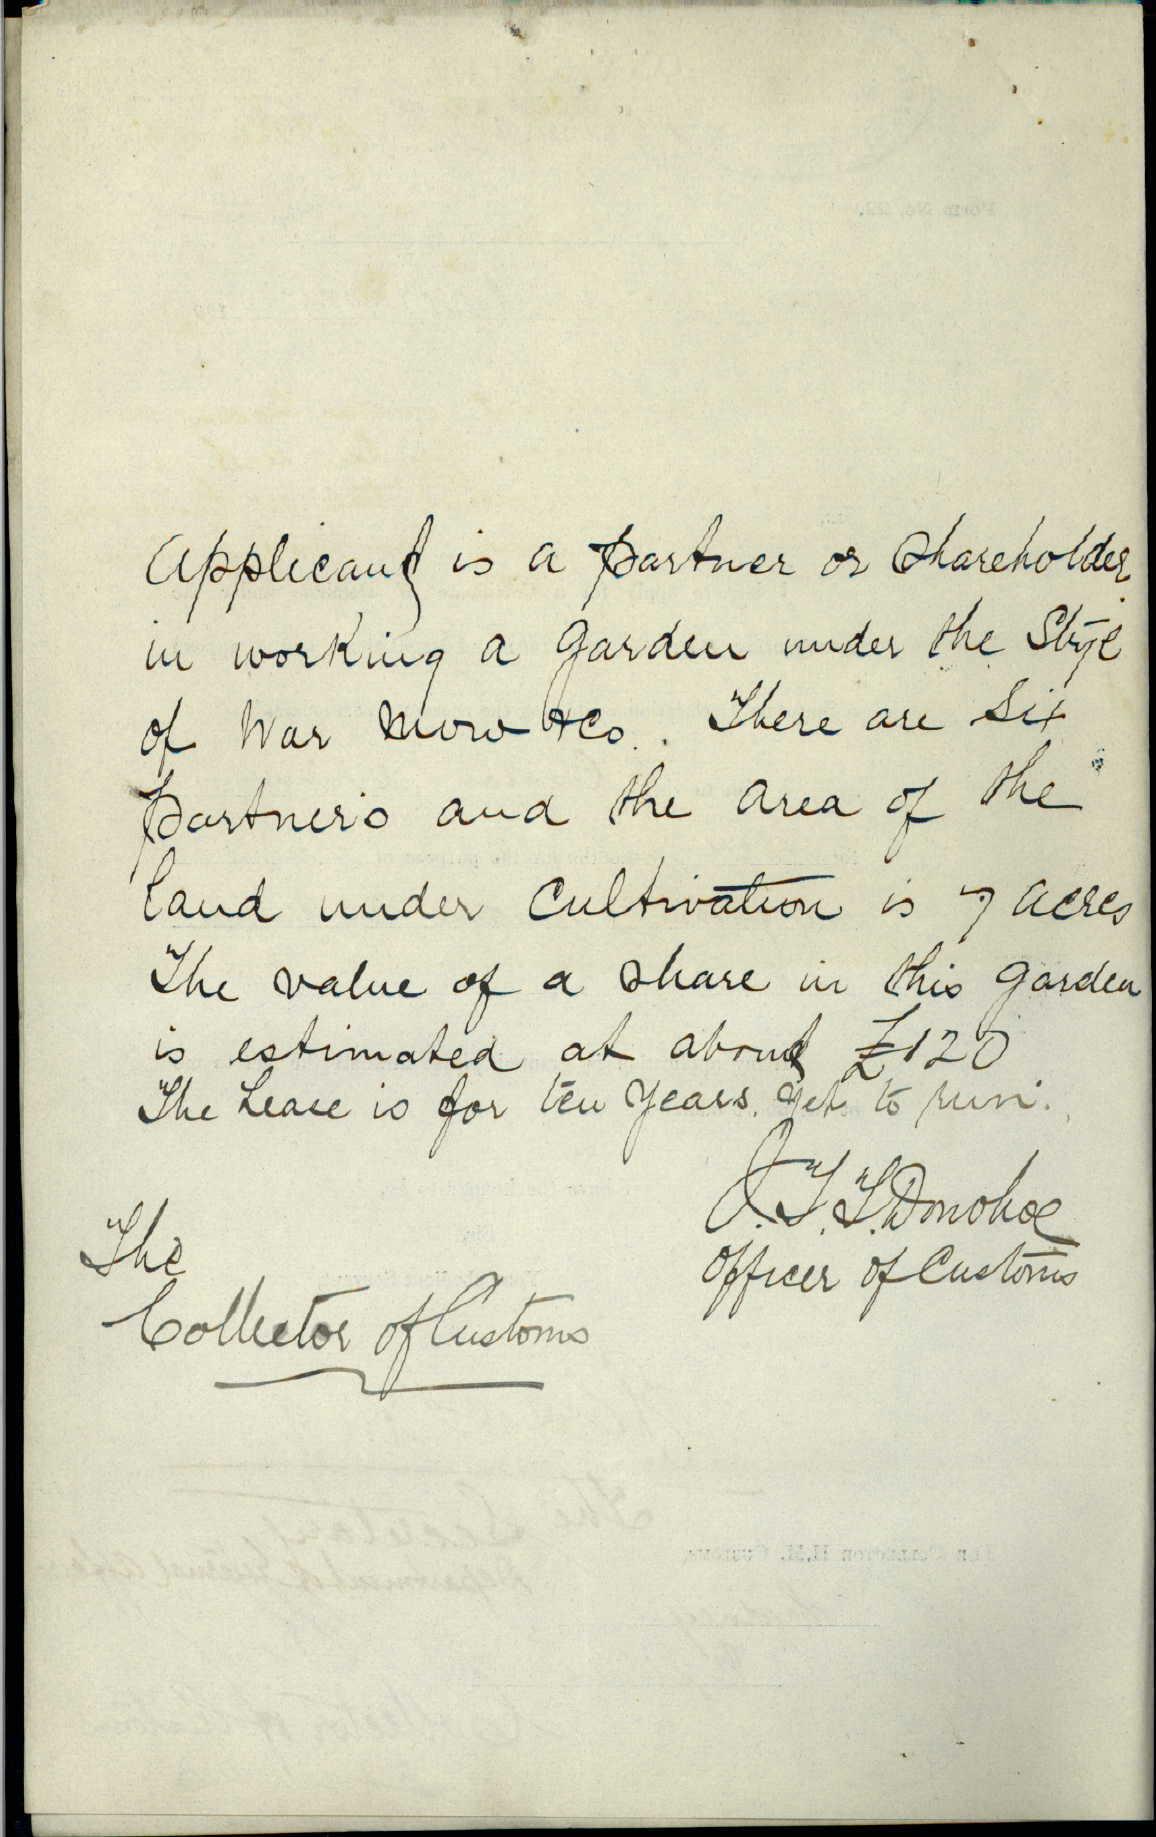 Applicant is a partner or shareholder
in working a garden under the Style
of War Mow & Co. There are six
partners and the area of the
land under cultivation is 7 acres
The value of a share in this garden
is estimated at about £120
The Lease is for ten years yet to run.
J. T. T. Donohoe
Officer of Customs
The
Collector of Customs